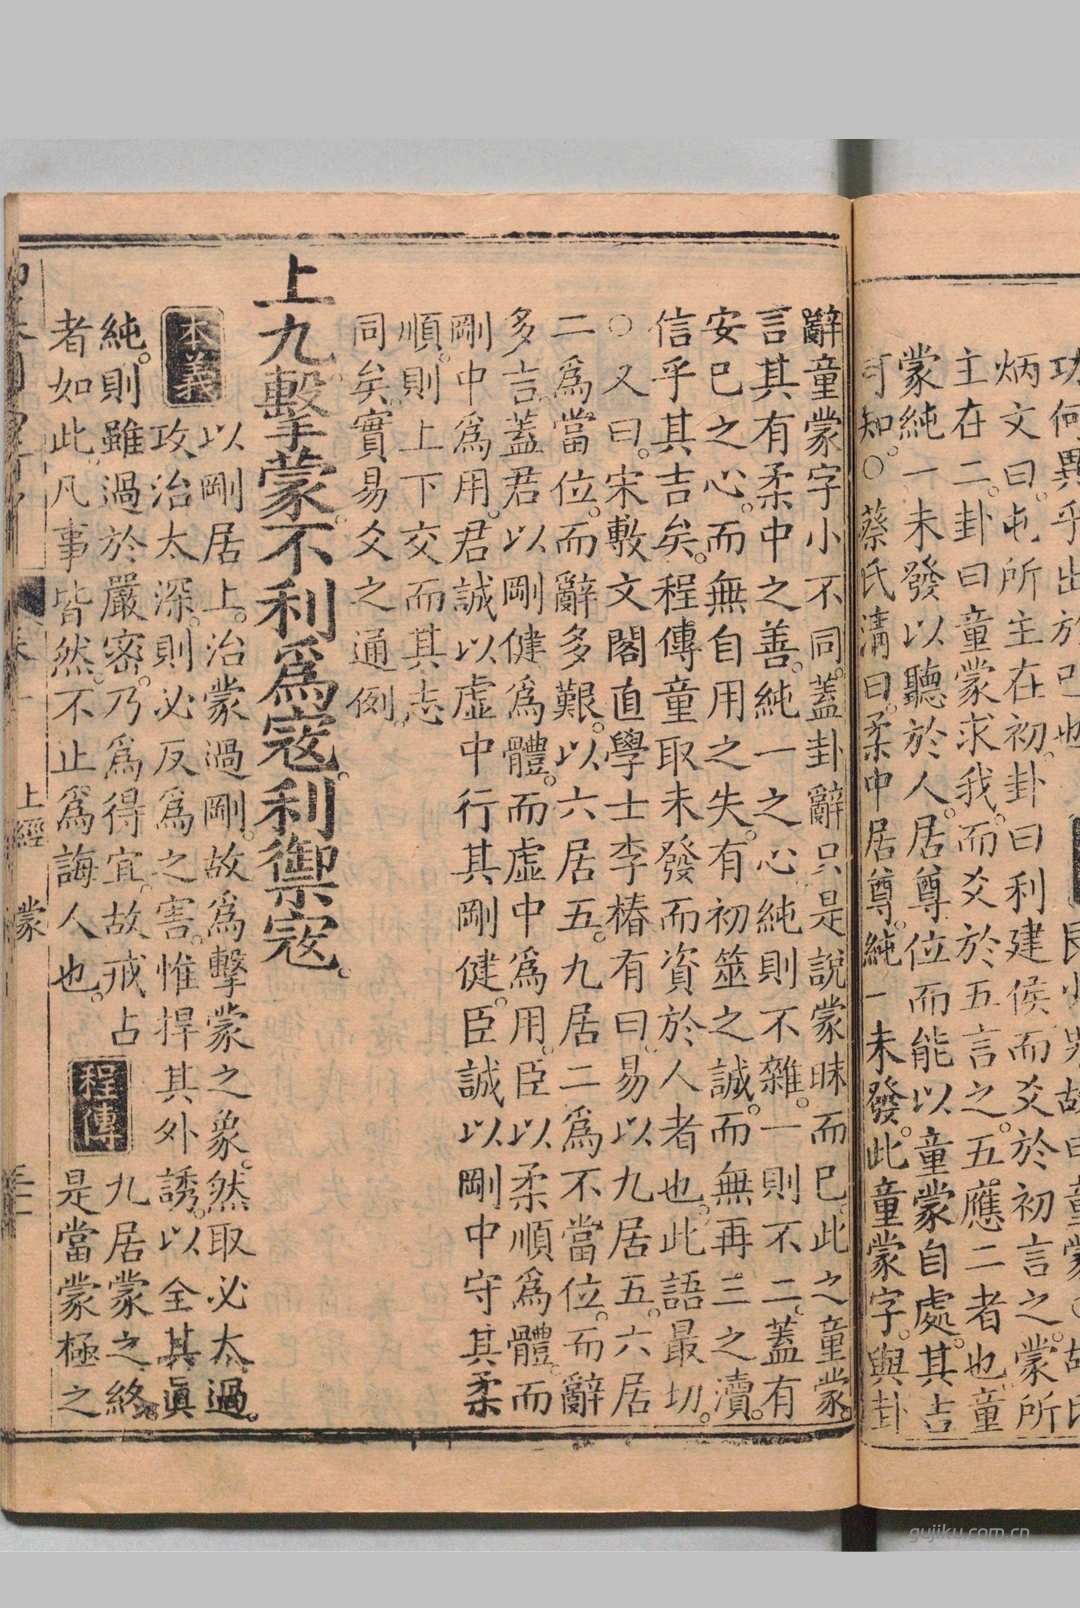 功何異乎出於己也
炳文曰屯所主在初卦曰利建侯而爻於初言之蒙所
主在二卦曰童蒙求我而爻於五言之五應二者也童
蒙純一未發以聽於人居尊位而能以童蒙自處其吉
可知○蔡氏清曰柔中居尊純一未發此童蒙字與卦
辭童蒙字小不同蓋卦辭只是說蒙昧而已此之童蒙
言其有柔中之善純一之心純則不雜一則不二蓋有
安已之心而無自用之失有初筮之誠而無再三之瀆
信乎其吉矣程傳童取未發而資於人者也此語最切
○又曰宋敷文閣直學士李椿有曰易以九居五六居
二為當位而辭多艱以六居五九居二為不當位而辭
多吉蓋君以剛健為體而虛中為用臣以柔順為體而
剛中為用君誠以虛中行其剛健臣誠以剛中守其柔
順則上下交而其志
同矣實易爻之通例
上九擊蒙不利爲寇利禦寇
本義
以剛居上治蒙過剛故爲擊蒙之象然取必太過
攻治太深則必反爲之害惟捍其外誘以全其眞
純則雖過於嚴密乃爲得宜故戒占
者如此凡事皆然不止爲誨人也
程傳
九居蒙之終
是當蒙極之
上經 蒙